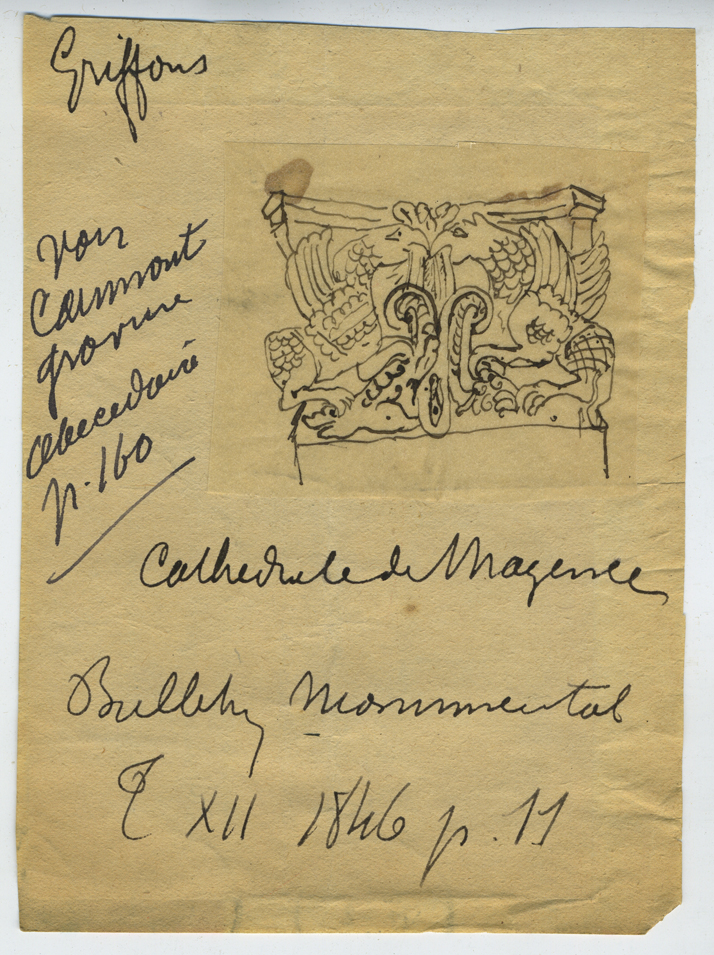 Griffons
voir
Caumont
gravure
abecedaire
p. 160
Cathedrale de Mayence
Bulletin Monumental
T XII 1846 p. 11